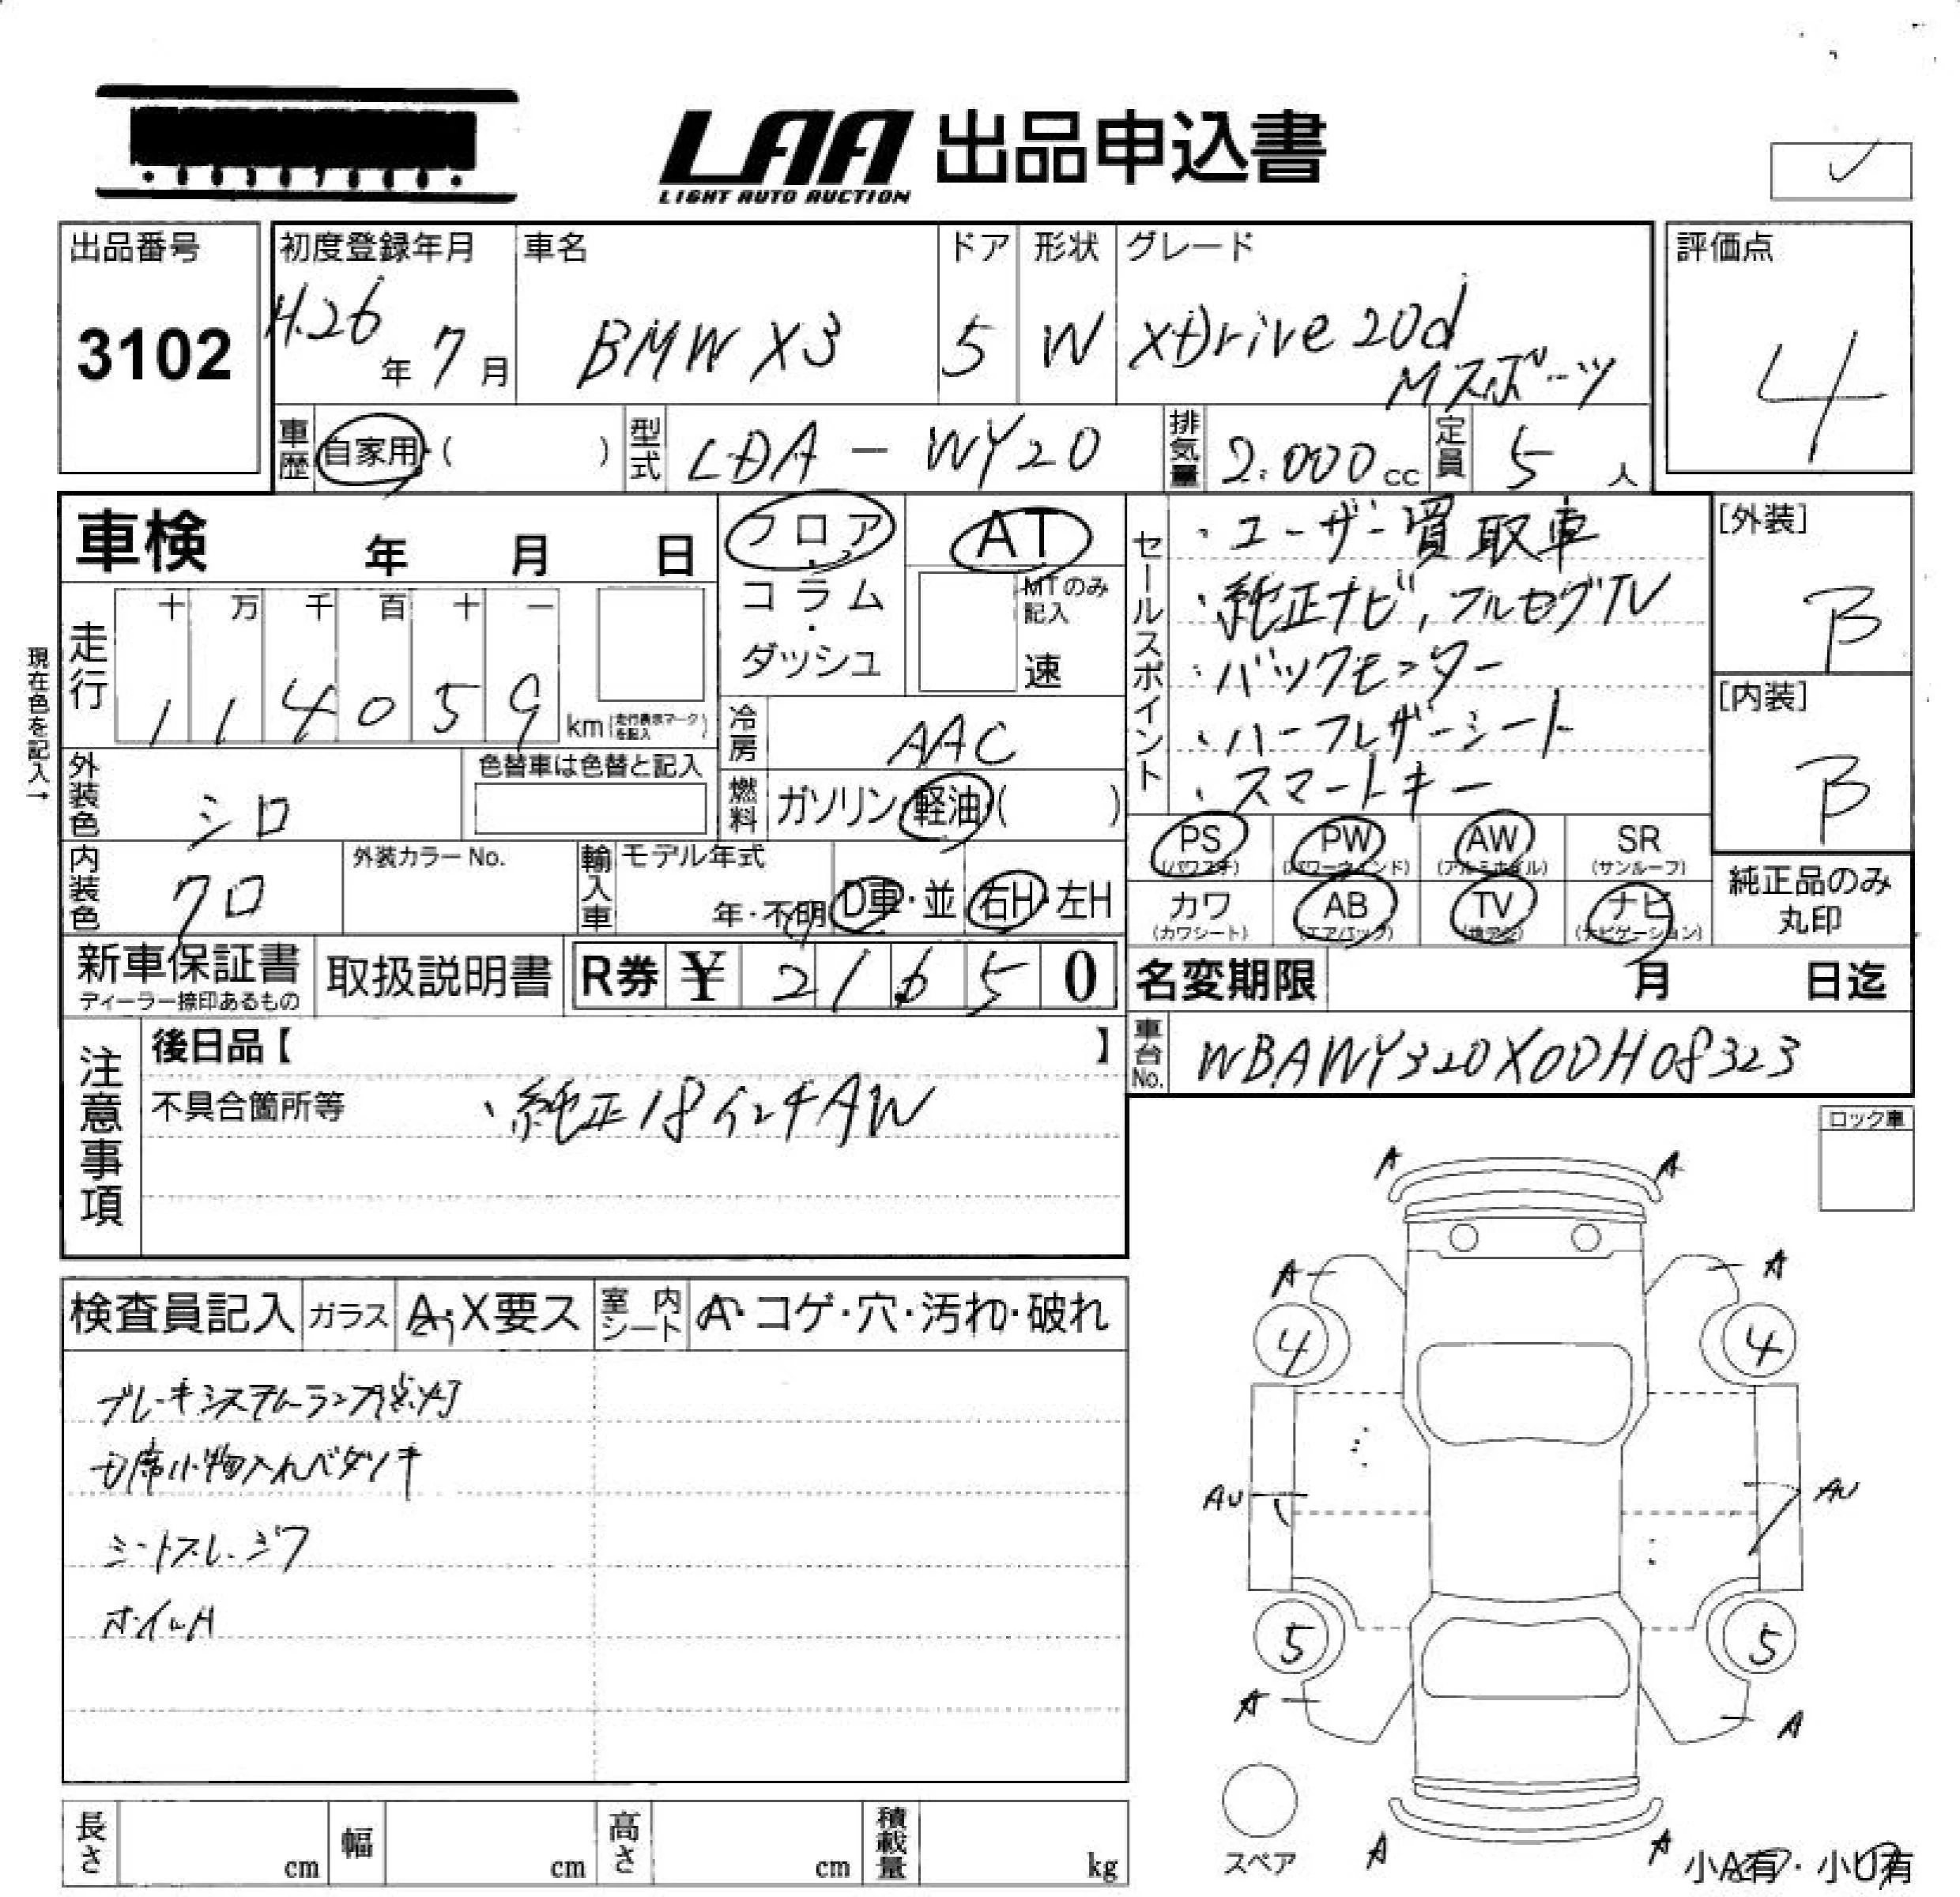 LAA 出品申込書
LIGHT AUTO AUCTION
出品番号
3102
初度登録年月
H.26年7月
車名
BMW X3
ドア
5
形状
W
グレード
xDrive 20d
Mスポーツ
評価点
4
車歴
自家用・( )
型式
LDA - WY20
排気量
2.000cc
定員
5人
車検 年 月 日
フロア
・
コラム
・
ダッシュ
AT
MTのみ記入
速
セールスポイント
・ユーザー買取車
・純正ナビ, フルセグTV
・バックモニター
・ハーフレザーシート
・スマートキー
[外装]
B
[内装]
B
現在色を記入→
走行
十 万 千 百 十 一
1 1 4 0 5 9
km(走行表示マークを記入)
冷房
AAC
外装色
シロ
色替車は色替と記入
燃料
ガソリン・軽油・( )
内装色
クロ
外装カラーNo.
輸入車
モデル年式
年・不明
D車・並
右H・左H
PS (パワステ)
PW (パワーウィンド)
AW (アルミホイル)
SR (サンルーフ)
カワ (カワシート)
AB (エアバック)
TV
ナビ (ナビゲーション)
純正品のみ
丸印
新車保証書
ディーラー捺印あるもの
取扱説明書
R券 ¥ 21650
名変期限 月 日迄
車台No.
WBAWY320X00H08323
注意事項
後日品【 】
不具合箇所等
、純正18インチAW
ロック車
検査員記入
ガラス
A・X要ス
室内シート
A・コゲ・穴・汚れ・破れ
ブレーキシステムランプ点灯
D席小物入れベタツキ
シートスレ、シワ
ホイルA
A A
A A
4 4
AU AU
5 5
A A
スペア
A A
小A有・小U有
長さ cm
幅 cm
高さ cm
積載量 kg